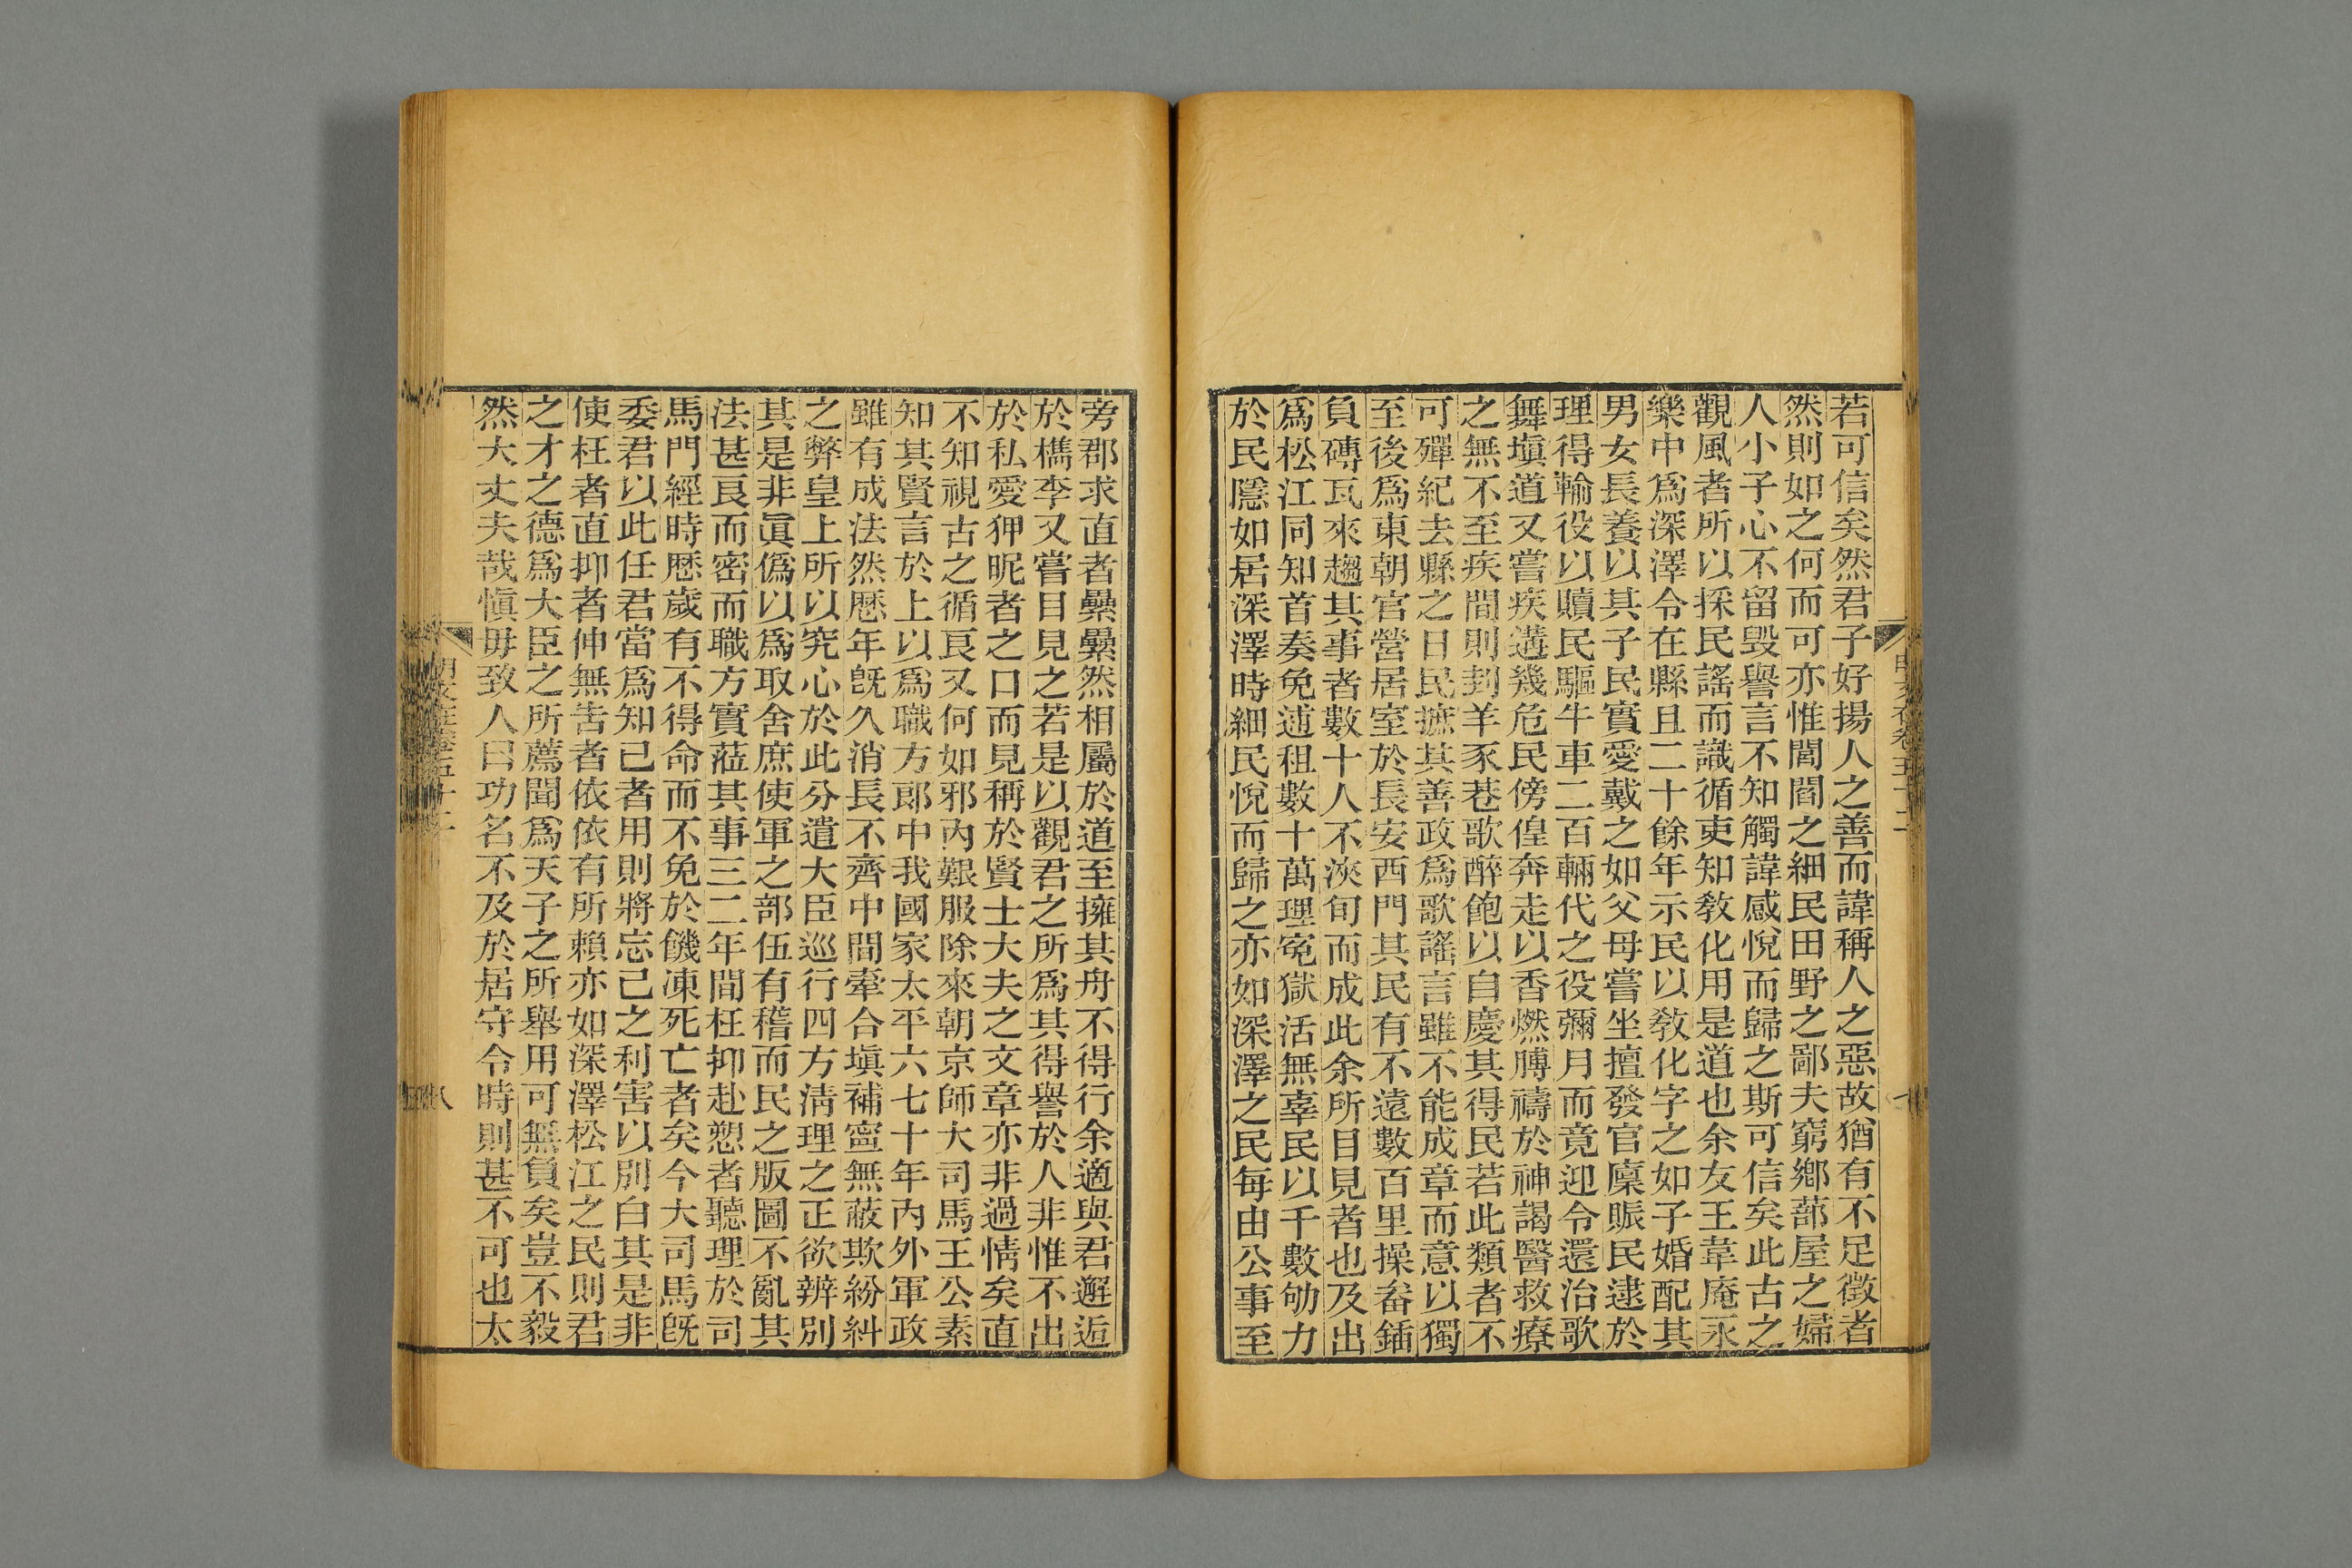 若可信矣然君子好揚人之善而諱稱人之惡故猶有不足徵者
然則如之何而可亦惟閭閻之細民田野之鄙夫窮鄉蔀屋之婦
人小子心不留毀譽言不知觸諱感悅而歸之斯可信矣此古之
觀風者所以採民謠而識循吏知敎化用是道也余友王韋庵永
樂中爲深澤令在縣且二十餘年示民以敎化字之如子婚配其
男女長養以其子民實愛戴之如父母嘗坐擅發官廩賑民逮於
理得輸役以贖民驅牛車二百輛代之役彌月而竟迎令還治歌
舞塡道又嘗疾遘幾危民傍偟奔走以香燃膊禱於神謁醫救療
之無不至疾間則刲羊豕巷歌醉飽以自慶其得民若此類者不
可殫紀去縣之日民摭其善政爲歌謠言雖不能成章而意以獨
至後爲東朝官營居室於長安西門其民有不遠數百里操畚鍤
負磚瓦來趨其事者數十人不浹旬而成此余所目見者也及出
爲松江同知首奏免逋租數十萬理寃獄活無辜民以千數劬力
於民隱如居深澤時細民悅而歸之亦如深澤之民每由公事至
旁郡求直者纍纍然相屬於道至擁其舟不得行余適與君邂逅
於檇李又嘗目見之若是以觀君之所爲其得譽於人非惟不出
於私愛狎昵者之口而見稱於賢士大夫之文章亦非過情矣直
不知視古之循良又何如邪內艱服除來朝京師大司馬王公素
知其賢言於上以爲職方郎中我國家太平六七十年內外軍政
雖有成法然歷年旣久消長不齊中間牽合塡補寧無蔽欺紛糾
之弊皇上所以究心於此分遣大臣巡行四方淸理之正欲辨別
其是非眞僞以爲取舍庶使軍之部伍有稽而民之版圖不亂其
法甚良而密而職方實蒞其事三二年間枉抑赴愬者聽理於司
馬門經時歷歲有不得命而不免於饑凍死亡者矣今大司馬旣
委君以此任君當爲知己者用則將忘己之利害以別白其是非
使枉者直抑者伸無吿者依依有所賴亦如深澤松江之民則君
之才之德爲大臣之所薦聞爲天子之所舉用可無負矣豈不毅
然大丈夫哉愼毋致人曰功名不及於居守令時則甚不可也太